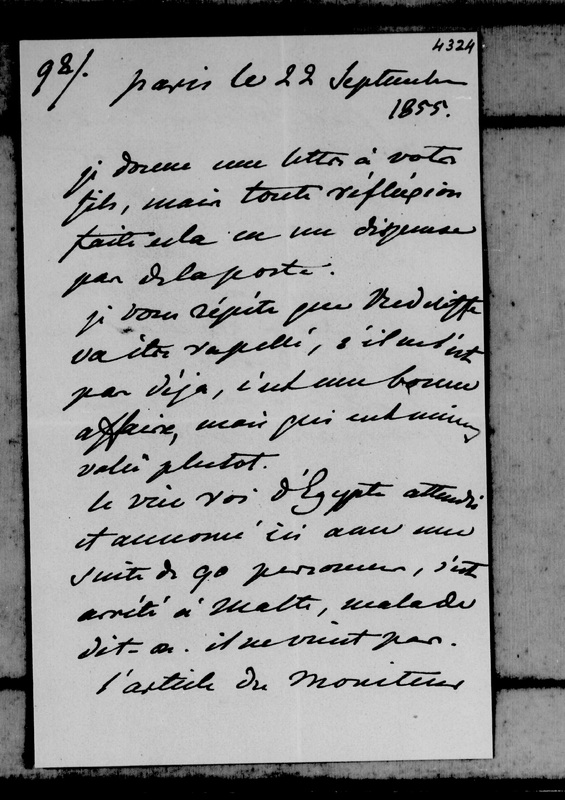 4324
98/.
paris le 22 Septembre
1855.
je donne une lettre à votre
fils, mais toute réfléxion
faite cela ne me dispense
pas de la poste.
je vous répète que Redcliffe
va être rapellé, s'il ne l'est
pas déja, c'est une bonne
affaire, mais qui eut mieux
valu plutot.
le vice roi d'Egypte attendu
et annoncé ici avec une
suite de 90 personnes, s'est
arrêté à Malte, malade
dit-on. il ne vient pas.
l'article du Moniteur